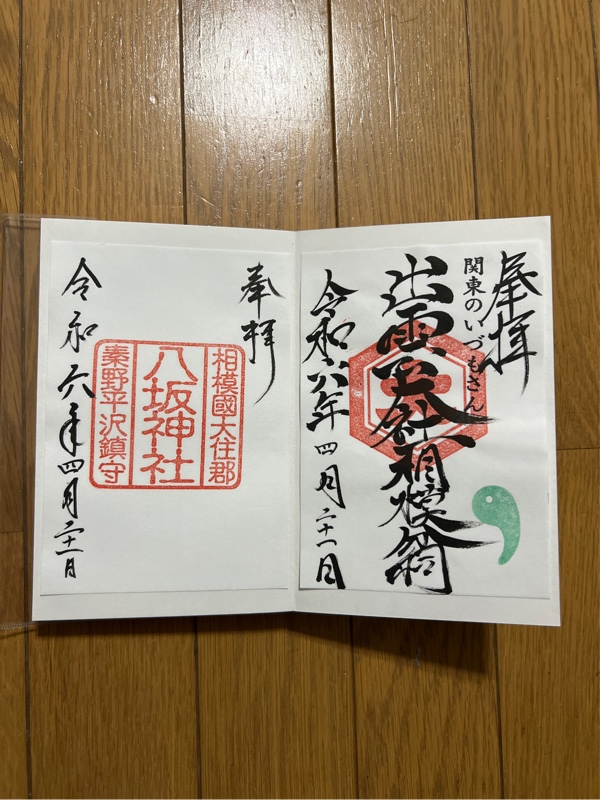 奉拝
関東のいづもさん
出雲大社相模分祠
令和六年四月二十一日
奉拝
相模國大住郡
八坂神社
秦野平沢鎮守
令和六年四月二十一日